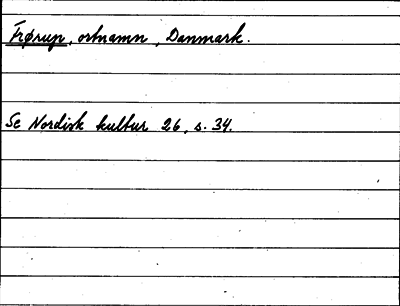 Frørup, ortnamn, Danmark.
Se Nordisk kultur 26, s. 34.